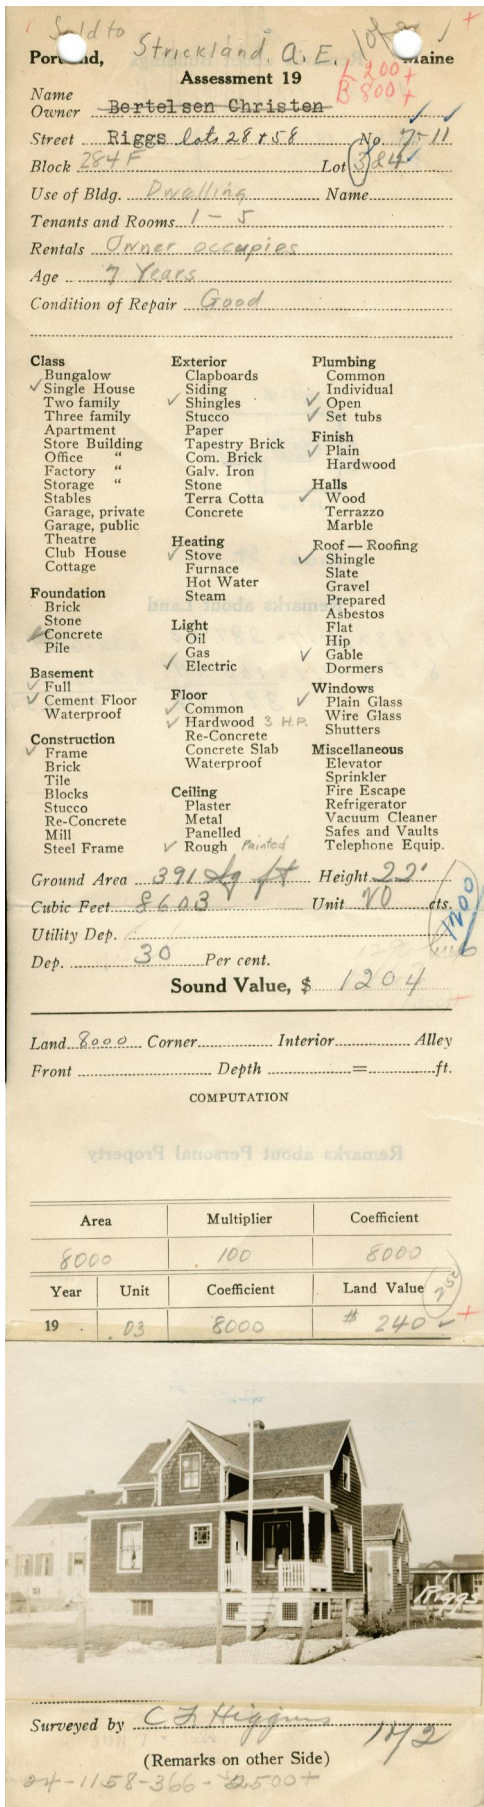 Sold to Strickland, A. E. 1 of 2
Portland, Maine
L 200+
B 800+
Assessment 19
Name
Owner Bertelsen Christen
Street Riggs lots 28 & 58 No 7-11
Block 284F Lot 3 & 4
Use of Bldg. Dwelling Name
Tenants and Rooms 1 - 5
Rentals Owner occupies
Age 7 Years
Condition of Repair Good
Class
Bungalow
✓ Single House
Two family
Three family
Apartment
Store Building
Office "
Factory "
Storage "
Stables
Garage, private
Garage, public
Theatre
Club House
Cottage
Foundation
Brick
Stone
✓ Concrete
Pile
Basement
✓ Full
✓ Cement Floor
Waterproof
Construction
✓ Frame
Brick
Tile
Blocks
Stucco
Re-Concrete
Mill
Steel Frame
Exterior
Clapboards
Siding
✓ Shingles
Stucco
Paper
Tapestry Brick
Com. Brick
Galv. Iron
Stone
Terra Cotta
Concrete
Heating
✓ Stove
Furnace
Hot Water
Steam
Light
Oil
Gas
✓ Electric
Floor
✓ Common
✓ Hardwood 3 H.P.
Re-Concrete
Concrete Slab
Waterproof
Ceiling
Plaster
Metal
Panelled
✓ Rough Painted
Plumbing
Common
Individual
✓ Open
✓ Set tubs
Finish
✓ Plain
Hardwood
Halls
✓ Wood
Terrazzo
Marble
Roof — Roofing
✓ Shingle
Slate
Gravel
Prepared
Asbestos
Flat
Hip
✓ Gable
Dormers
Windows
✓ Plain Glass
Wire Glass
Shutters
Miscellaneous
Elevator
Sprinkler
Fire Escape
Refrigerator
Vacuum Cleaner
Safes and Vaults
Telephone Equip.
Ground Area 391 sq ft Height 22'
Cubic Feet 8603 Unit 20 cts.
1200
Utility Dep.
Dep. 30 Per cent.
Sound Value, $ 1204
Land 8000 Corner Interior Alley
Front Depth = ft.
COMPUTATION
Area Multiplier Coefficient
8000 100 8000
Year Unit Coefficient Land Value
250
19 .03 8000 # 240
Riggs
Surveyed by C F Higgins
142
(Remarks on other Side)
24-1158-366-2500+